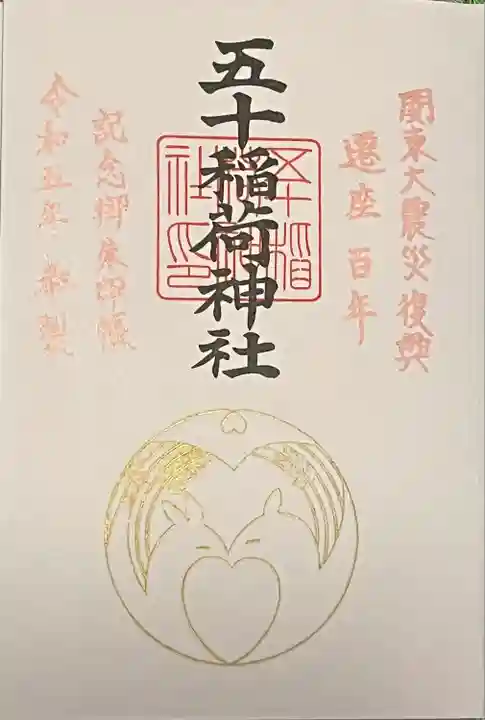 関東大震災復興
遷座百年
五十稲荷神社
記念御朱印帳
令和五年奉製